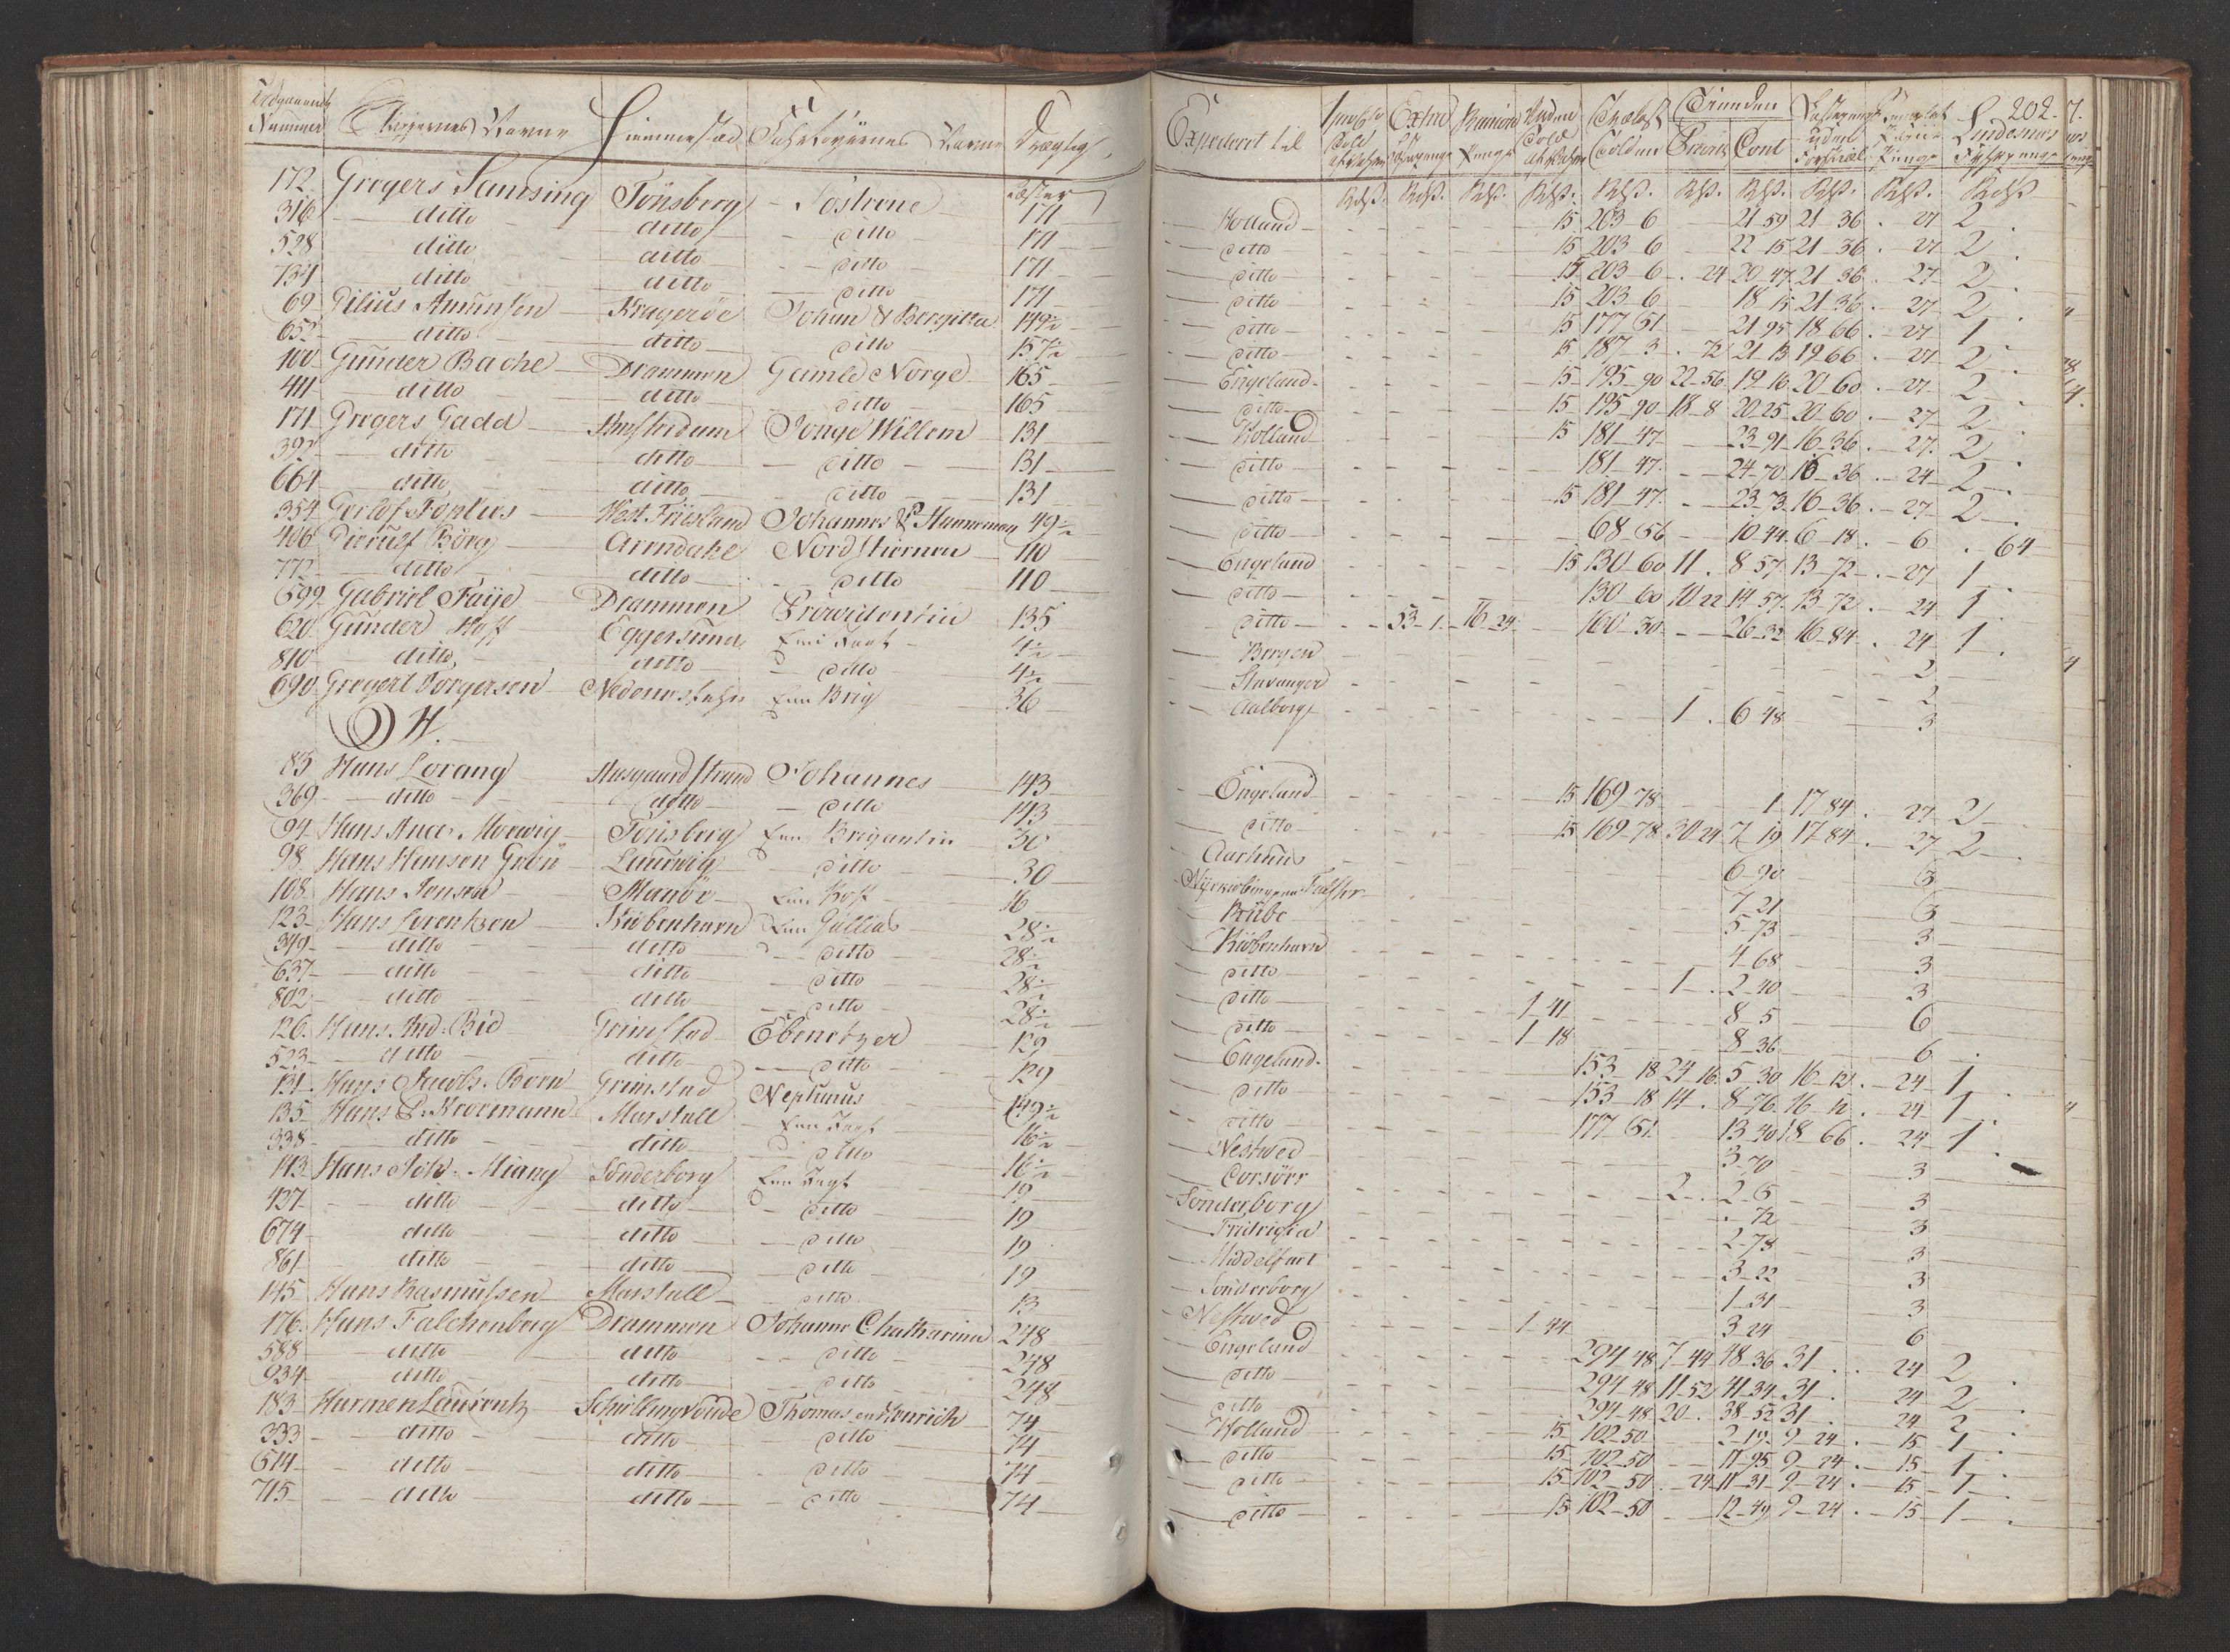 202.
Nummer Skippernes Navne Hiemmestæd Fahrtøyernes Navne Drægtig Expederet til
172 Gregers Samsing Tönsberg Söstrene 171 Holland 15 203 6 21 59 21 36 27 2
316 ditto ditto ditto 171 ditto 15 203 6 22 15 21 36 27 2
528 ditto ditto ditto 171 ditto 15 203 6 24 20 47 21 36 27 2
734 ditto ditto ditto 171 ditto 15 203 6 18 15 21 36 27 2
69 Amunsen Krageröe Johan & Bergitta 149½ ditto 15 177 51 21 95 18 66 27 1
652 ditto ditto ditto 157½ ditto 15 187 3 72 21 13 19 66 27 2
100 Gunder Bache Drammen Gamle Norge 165 Engeland 15 195 90 22 56 19 16 20 60 27 2
411 ditto ditto ditto 165 ditto 15 195 90 18 8 20 25 20 60 27 2
171 Gregers Gadd Amsterdam Jonge Willem 131 Holland 15 181 47 23 91 16 36 27 2
392 ditto ditto ditto 131 ditto 181 47 24 70 16 36 24 2
664 ditto ditto ditto 131 ditto 15 181 47 23 73 16 36 27 2
354 Gerlof Fopkes West Friisland Johannes 49½ ditto 68 56 10 44 6 18 6 64
406 Börg Arendahl Nordstiernen 110 Engeland 15 130 60 11 8 57 13 72 27 1
772 ditto ditto ditto 110 ditto 130 60 10 22 14 57 13 72 24 1
599 Gabriel Faije Drammen Prowidentia 135 ditto 53 1 16 24 160 30 26 32 16 84 24 1
620 Gunder Hoff Eggersund Een Jagt 4½ Bergen 2
810 ditto ditto ditto 4½ Stavanger 2
690 Gregert Torgersen Een Brig 36 Aalborg 1 6 48 3
H.
83 Hans Lorang Aasgaardstrand Johannes 143 Engeland 15 169 78 1 17 84 27 2
369 ditto ditto ditto 143 ditto 15 169 78 30 24 7 19 17 84 27 2
94 Hans And. Morwig Tönsberg Een Brigantin 30 Aarhuus 6 90 3
98 Hans Hansen Grön Laurwig ditto 30 Nyekiöbing paa Falster 7 21 3
108 Hans Jensen Manöe Een Hoff 16 Riibe 5 73 3
123 Hans Lorentzen Kiöbenhavn Een Gallias 28½ Kiöbenhavn 4 68 3
349 ditto ditto ditto 28½ ditto 1 2 10 3
637 ditto ditto ditto 28½ ditto 1 41 8 5 6
802 ditto ditto ditto 28½ ditto 1 18 8 36 6
126 Hans And. Bie Grimstad Ebenetzer 129 Engeland 153 18 24 16 5 30 16 12 24 1
523 ditto ditto ditto 129 ditto 153 18 14 8 76 16 12 24 1
131 Hans Jacobs. Born Grimstad Neptunus 149½ ditto 177 51 13 40 18 66 24 1
135 Hans P. Kroermann Marstall Een Jagt 16½ Nestwed 3 70 3
338 ditto ditto ditto 16½ Corsöer 2 2 6 3
143 Hans Joh. Miang Sönderborg Een Jagt 19 Sönderborg 72 3
437 ditto ditto ditto 19 Fridrigia 2 78 3
674 ditto ditto ditto 19 Middelfart 3 22 3
861 ditto ditto ditto 19 Sönderborg 1 31 3
145 Hans Rasmussen Marstall ditto 13 Nestwed 1 44 3 24 6
176 Hans Falchenberg Drammen Johanne Chatharina 248 Engeland 294 48 7 44 48 36 31 24 2
588 ditto ditto ditto 248 ditto 294 48 11 52 41 34 31 24 2
934 ditto ditto ditto 248 ditto 294 48 20 38 52 31 24 2
183 Harmen Laurentz Schellingvoude Thomas en Henrich 74 Holland 15 102 50 2 19 9 24 15 1
333 ditto ditto ditto 74 ditto 15 102 50 11 95 9 24 15 1
514 ditto ditto ditto 74 ditto 15 102 50 24 11 31 9 24 15 1
715 ditto ditto ditto 74 ditto 15 102 50 12 49 9 24 15 1